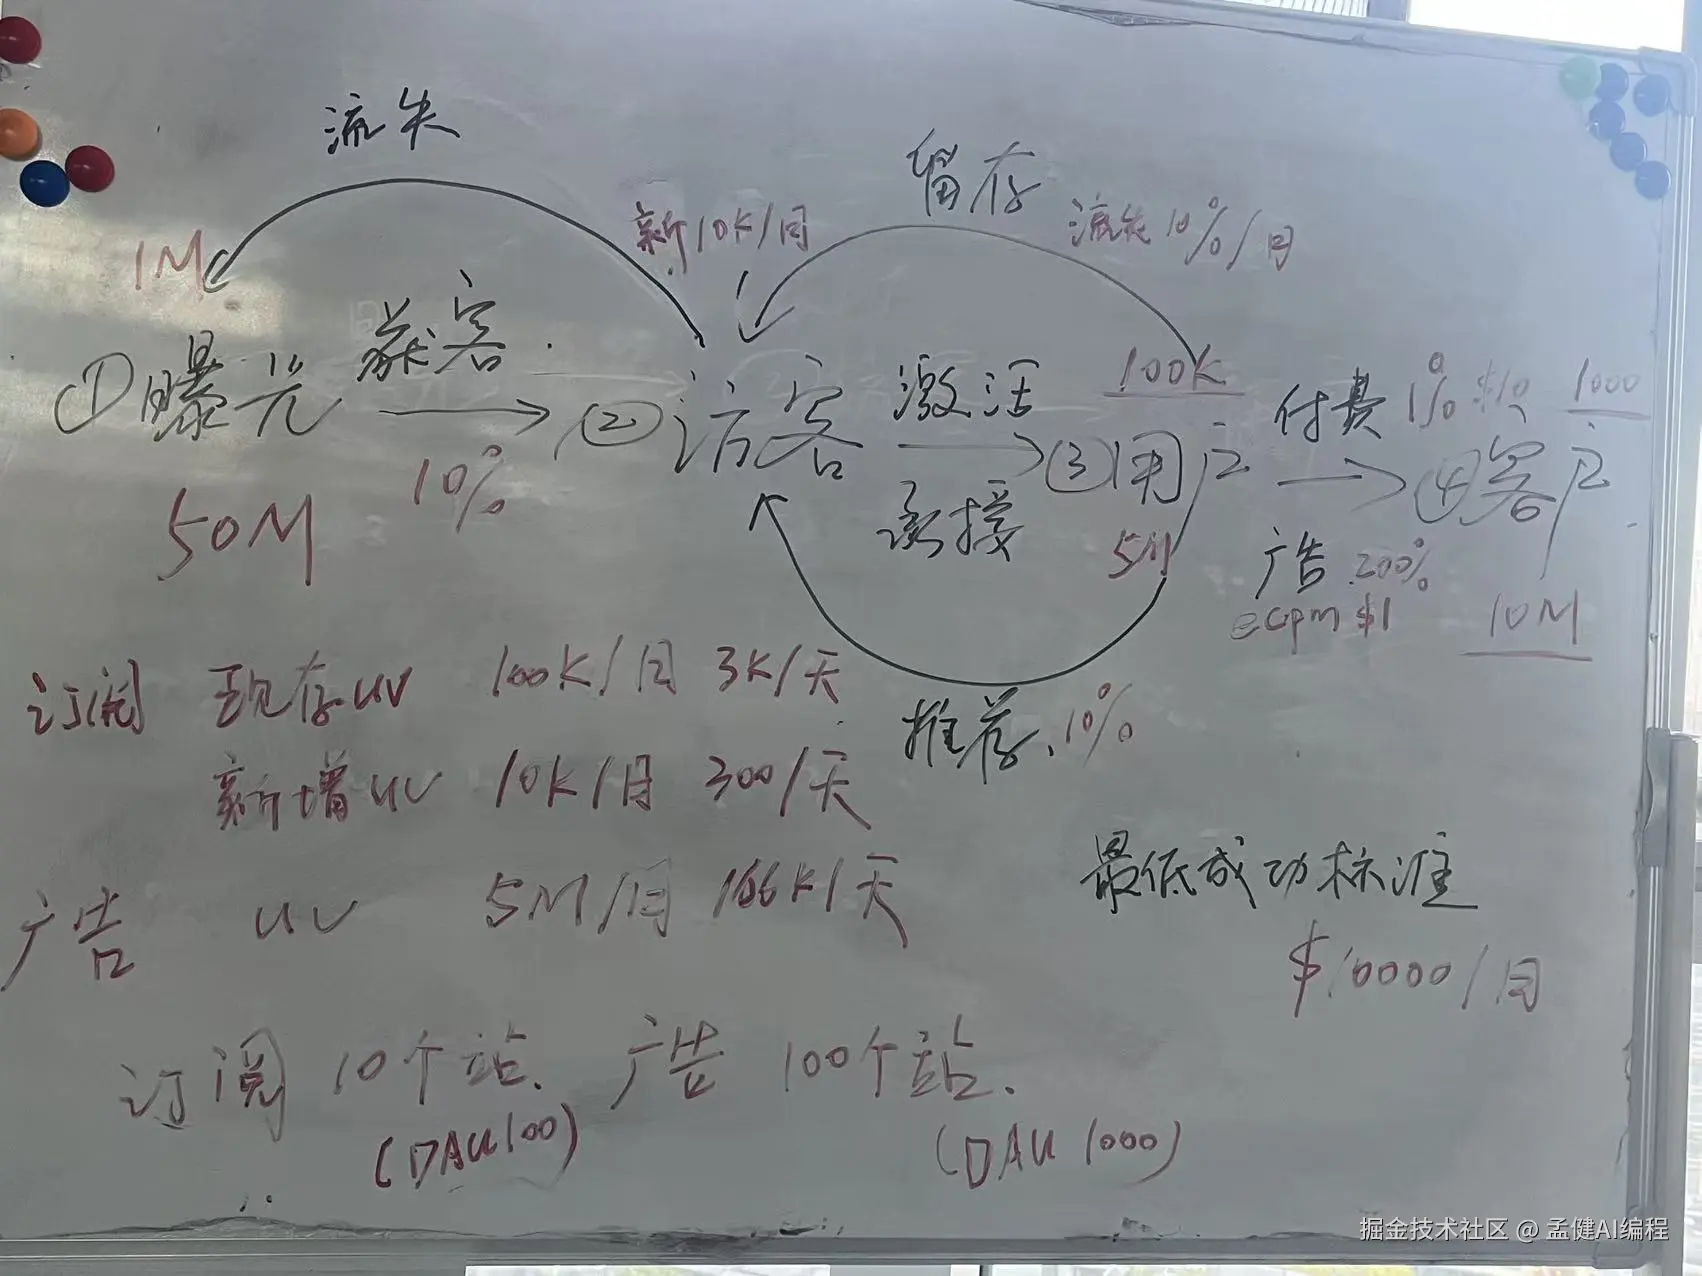 流失
留存
新10K/月
流失10%/月
1M
获客
激活
100K
付费 1% $10 1000
①曝光
②访客
③用户
④客户
10%
承接
50M
5M
广告 200%
ecpm $1
10M
订阅 现存UV 100K/月 3K/天
推荐、10%
新增UV 10K/月 300/天
最低成功标准
广告 UV 5M/月 166K/天
$10000/月
订阅 10个站、广告 100个站.
(DAU100)
(DAU 1000)
掘金技术社区 @ 孟健AI编程